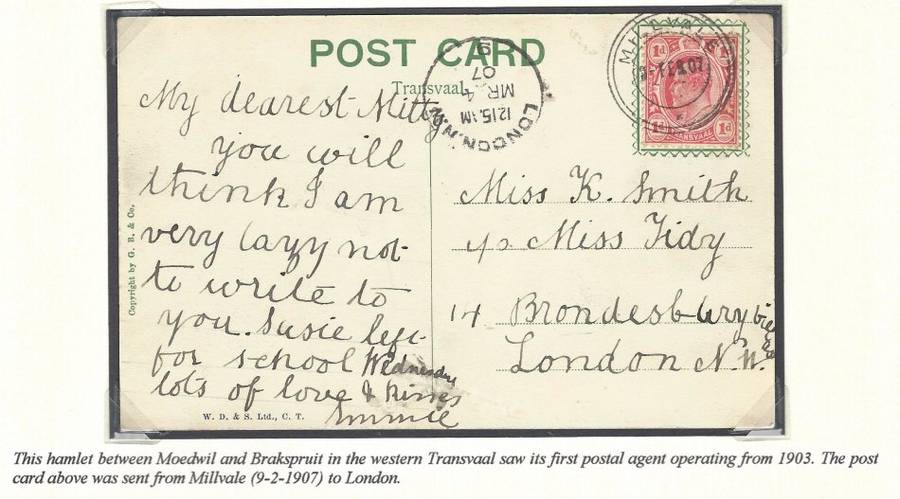 POST CARD
Transvaal.
My dearest Mitty
you will
think I am
very lazy not
to write to
you. Susie left
for school Wednesday
lots of love & kisses
Emmie
Copyright by G. B. & Co.
W. D. & S. Ltd., C. T.
LONDON. N.W.
12.15.AM
MR 4
07
9
MILLVALE
1d 1d
TRANSVAAL
1d 1d
Miss K. Smith
c/o Miss Tidy
14 Brondesbury Villas
London N.W.
This hamlet between Moedwil and Brakspruit in the western Transvaal saw its first postal agent operating from 1903. The post
card above was sent from Millvale (9-2-1907) to London.